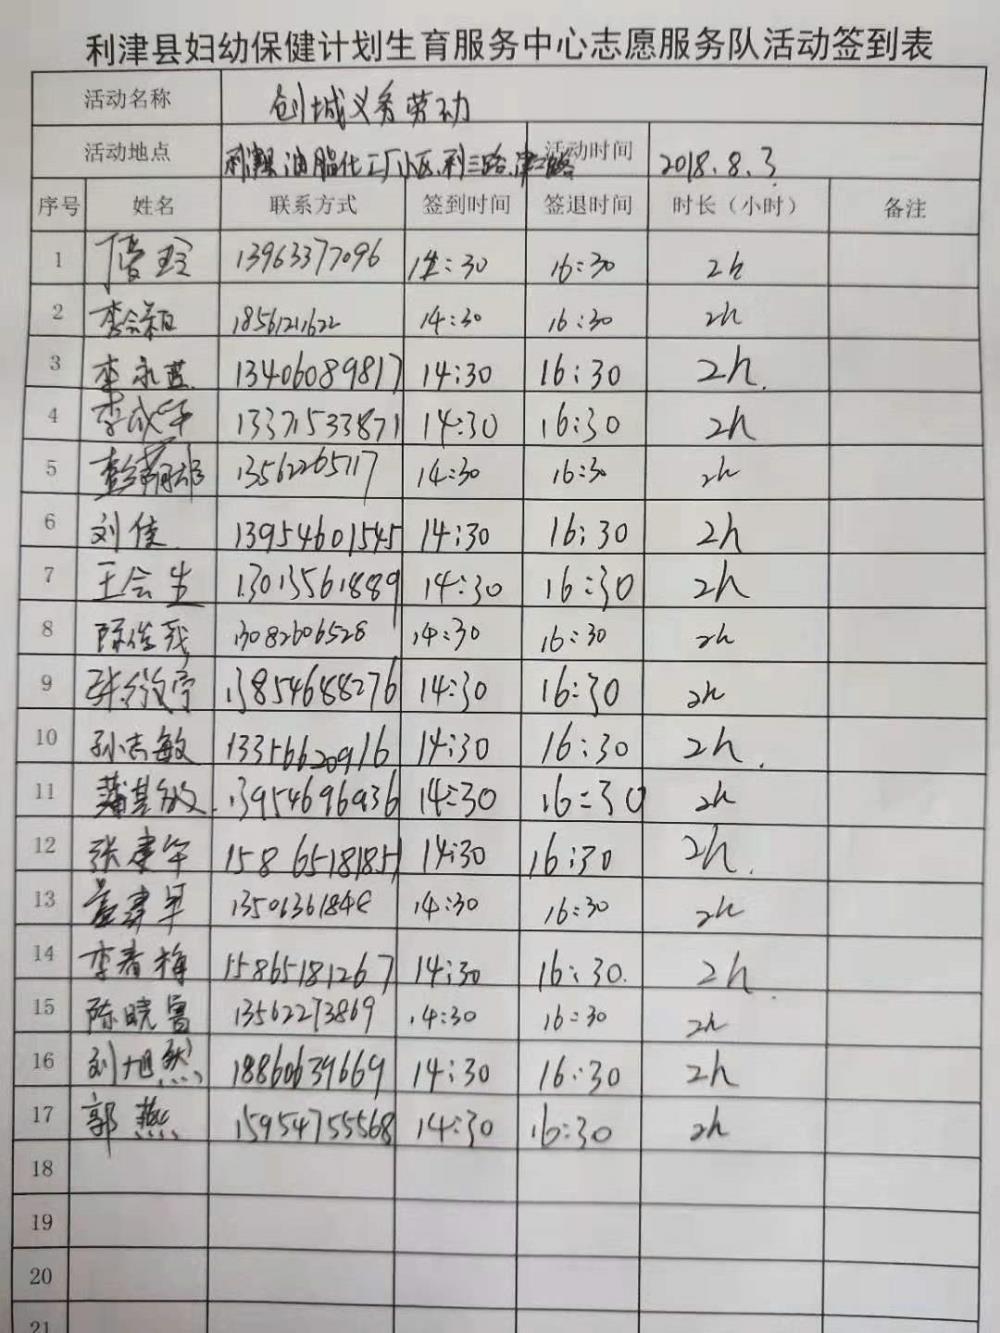 利津县妇幼保健计划生育服务中心志愿服务队活动签到表
活动名称 创城义务劳动
活动地点 利津县油脂化工厂小区、利三路、津二路 活动时间 2018.8.3
序号 姓名 联系方式 签到时间 签退时间 时长（小时） 备注
1 13963377096 14:30 16:30 2h
2 18561211622 14:30 16:30 2h
3 李永蓝 13406089817 14:30 16:30 2h.
4 李成华 13371533871 14:30 16:30 2h
5 13562265717 14:30 16:30 2h
6 刘佳 13954601545 14:30 16:30 2h
7 王会生 13013561889 14:30 16:30 2h
8 13082606528 14:30 16:30 2h
9 13854688276 14:30 16:30 2h
10 孙志敏 13356620916 14:30 16:30 2h.
11 13954696936 14:30 16:30 2h
12 张建华 15865181851 14:30 16:30 2h.
13 14:30 16:30 2h
14 李春梅 15865181267 14:30 16:30. 2h.
15 陈晓鲁 13562273869 14:30 16:30 2h
16 刘旭然 18860639669 14:30 16:30 2h
17 郭燕 15954755568 14:30 16:30 2h
18
19
20
21